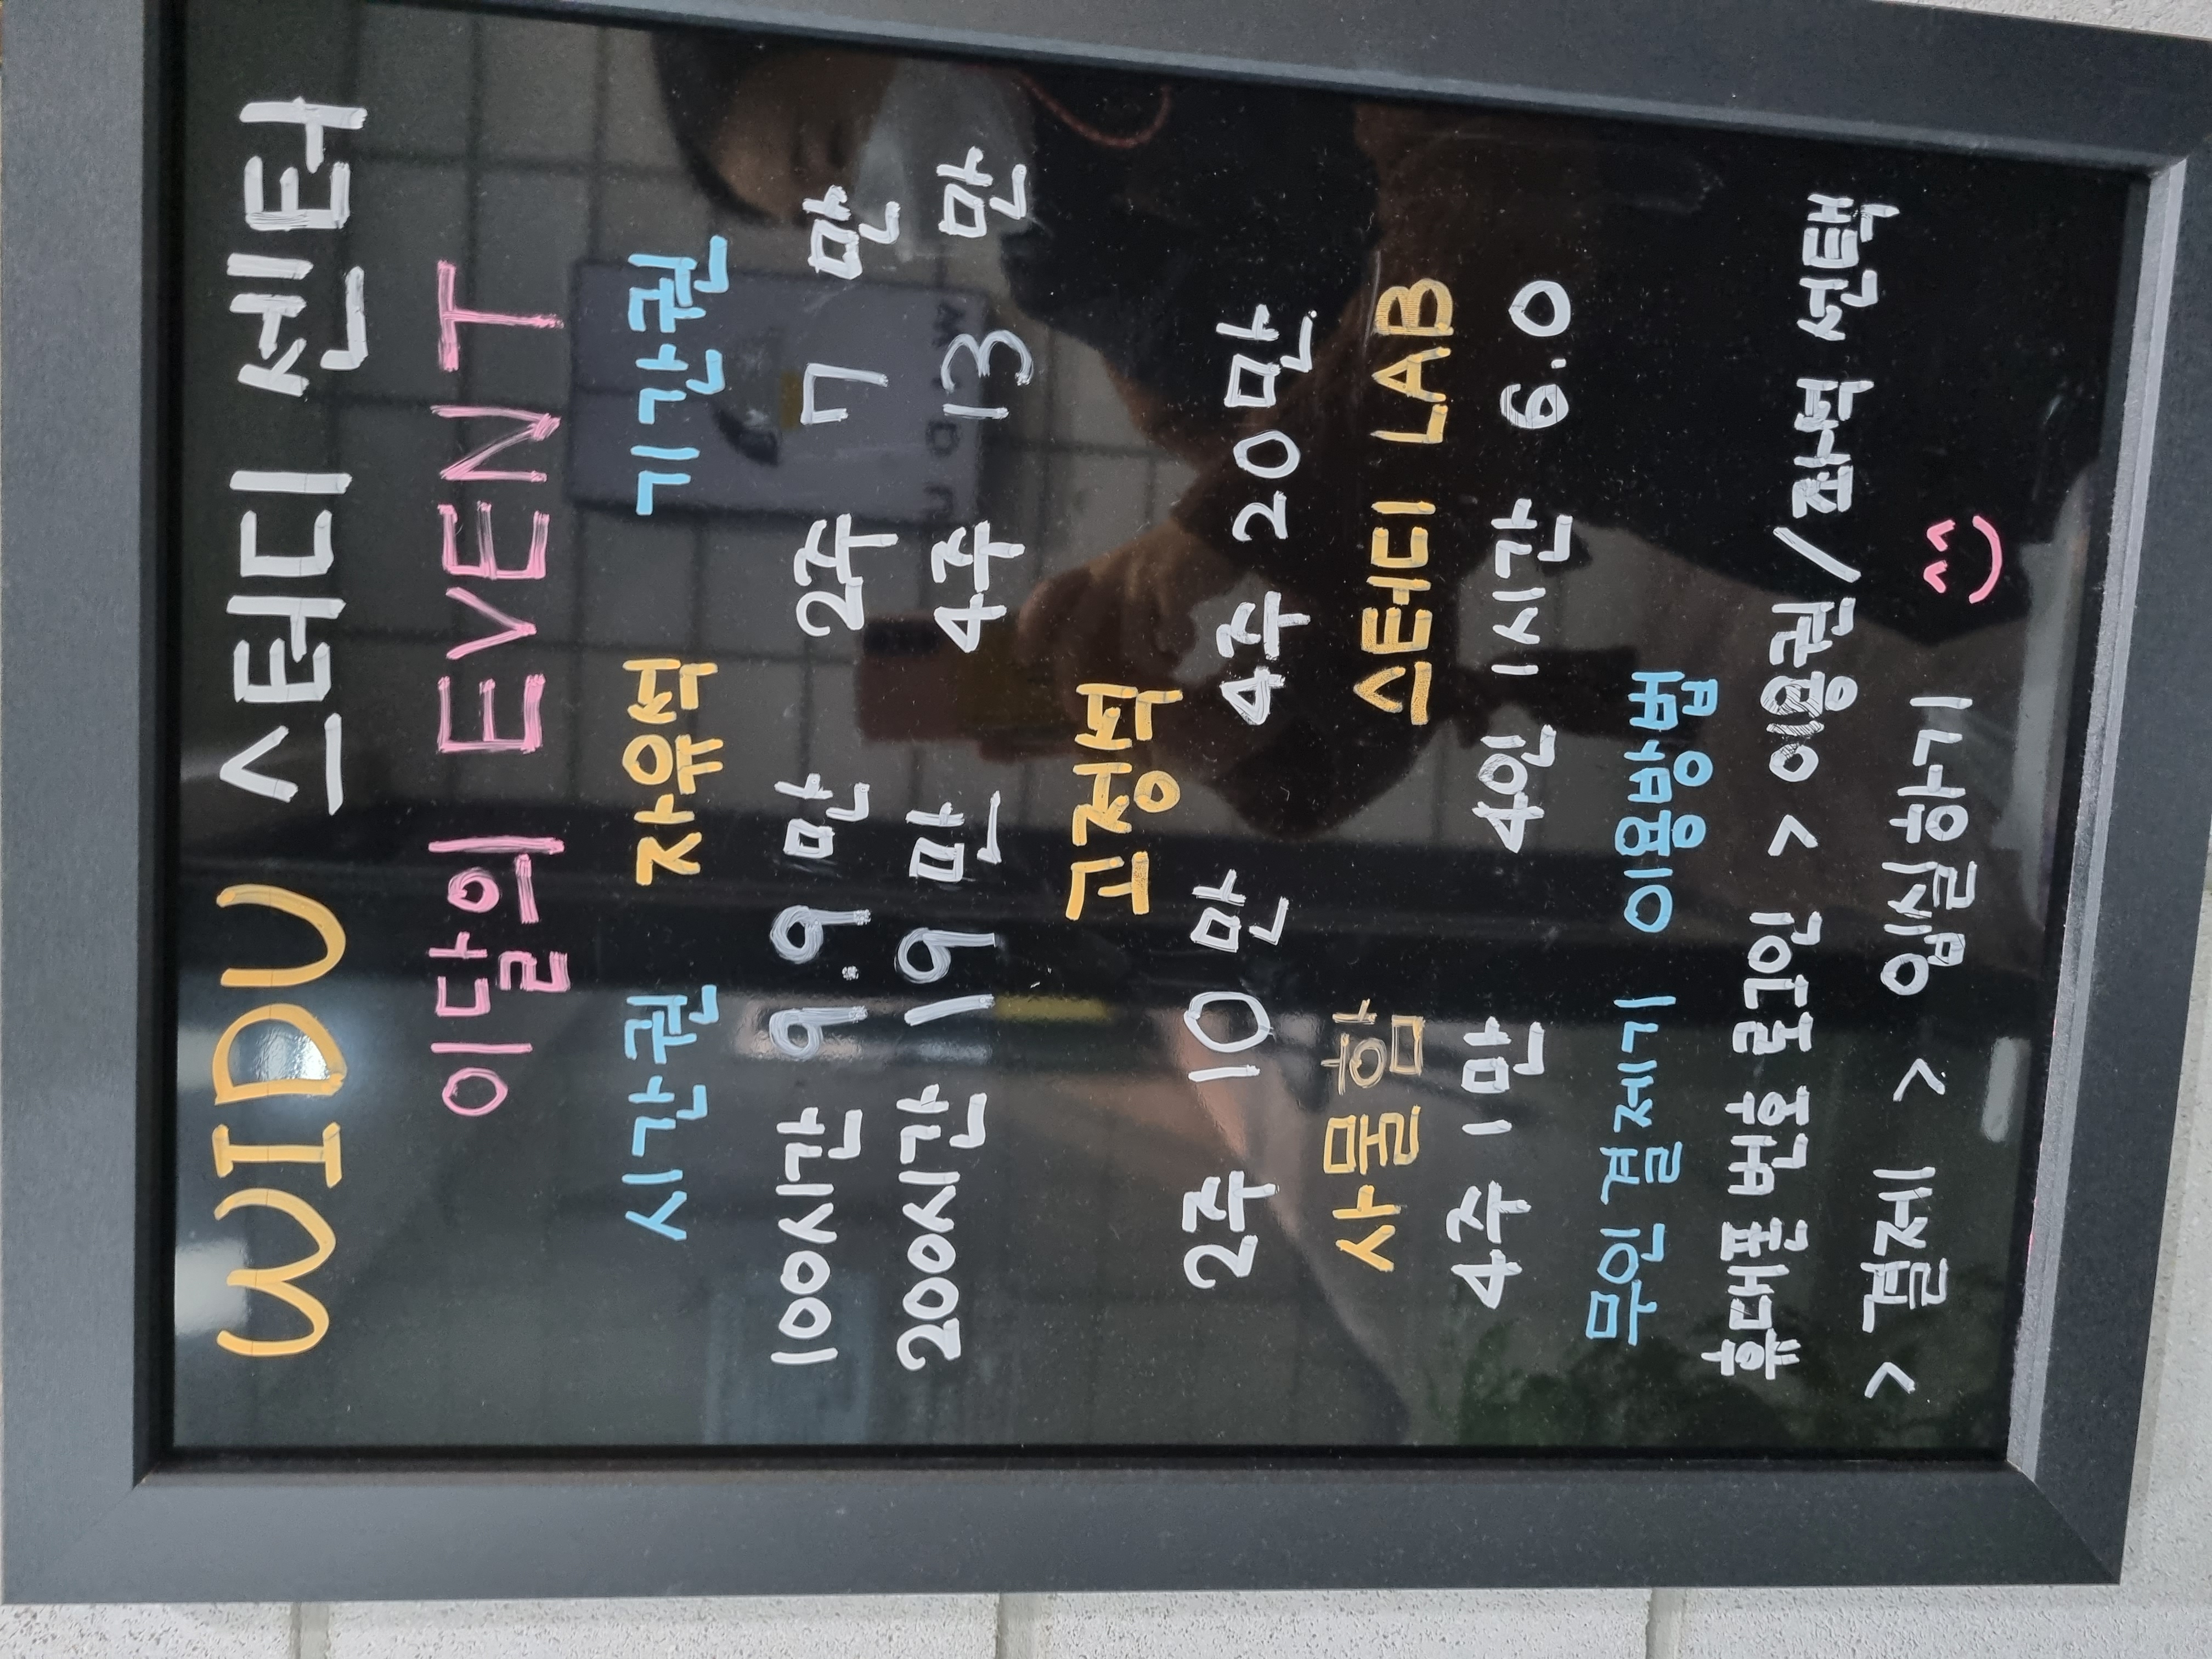 WIDU 스터디 센터
이달의 EVENT
시간권 자유석 기간권
100시간 9.9만 2주 7만
200시간 19만 4주 13만
고정석
2주 10만 4주 20만
사물함 스터디 LAB
4주 1만 4인 1시간 6.0
무인결제기 이용방법
휴대폰 번호 로그인 > 이용권/좌석 선택
> 결제 > 입실하기 ^^